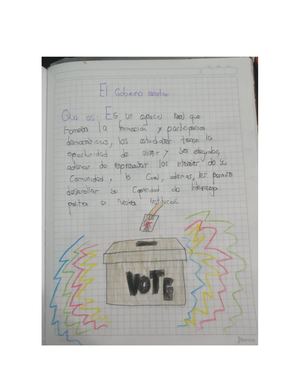 El Gobierno escolar
Qué es: Es un espacio real que
fomenta la formación y participación
democráticas, los estudiantes tienen la
oportunidad de elegir y ser elegidos,
además de representar los intereses de su
Comunidad, lo Cual, además, les permite
desarrollar su Capacidad de liderazgo
VOTE